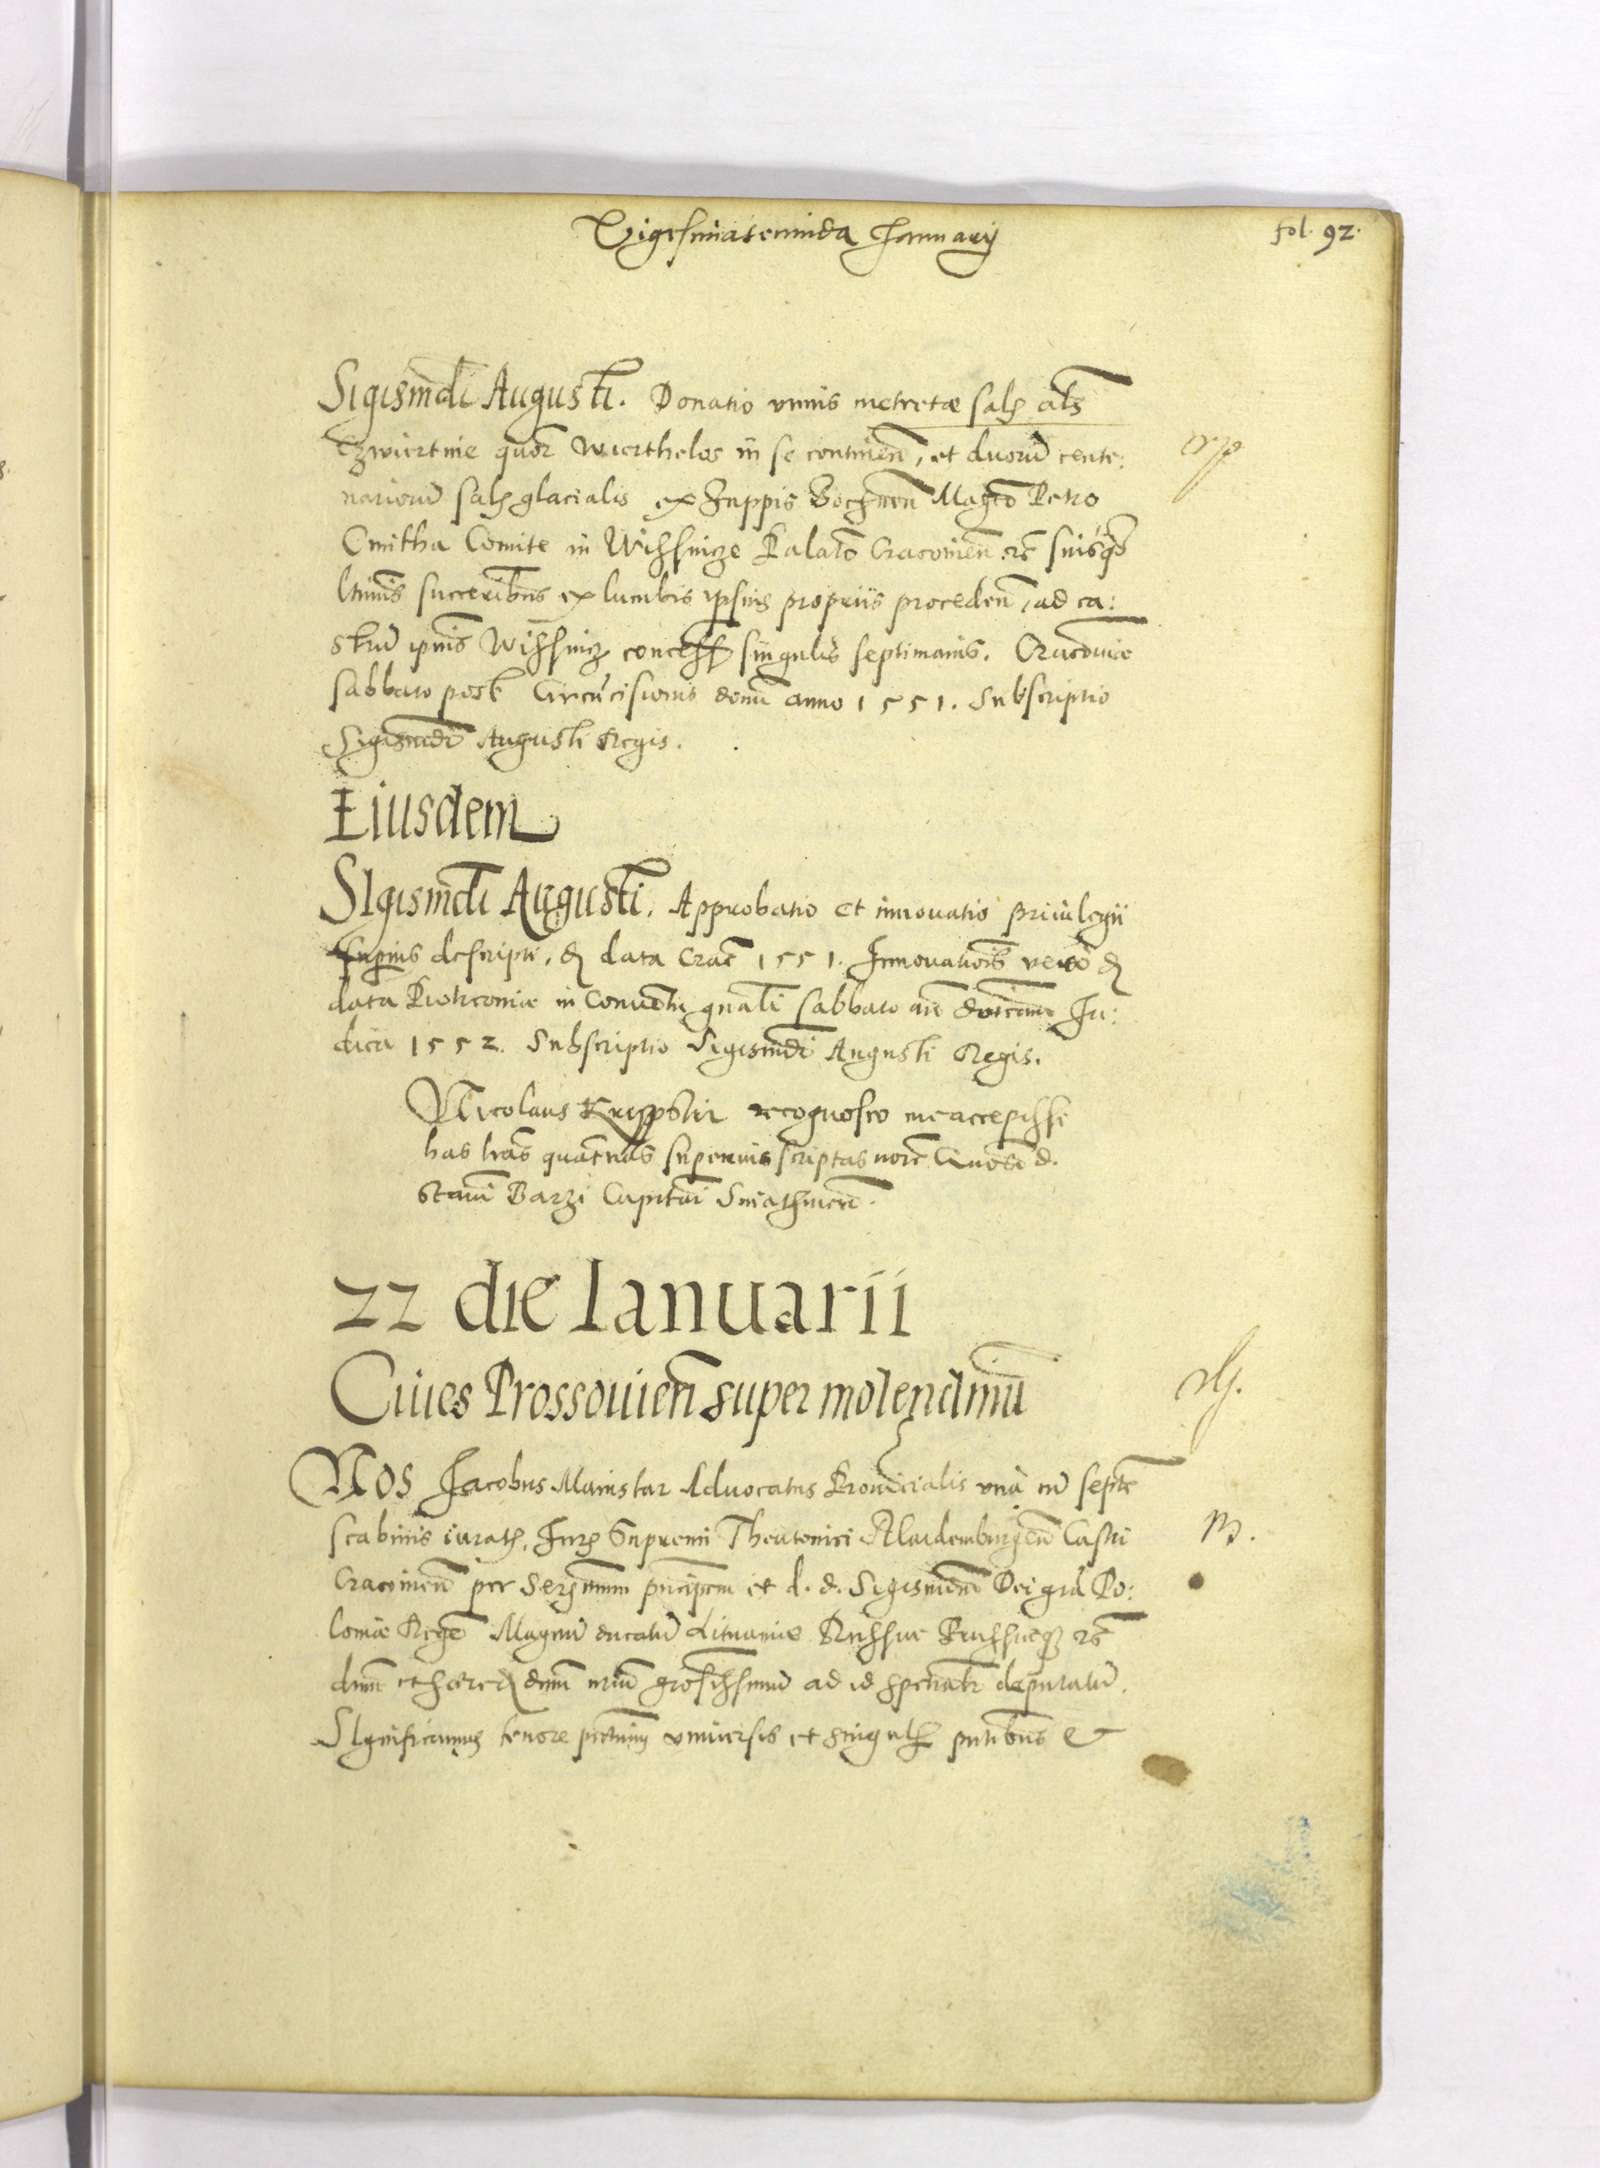 Vigesimasecunda Januarij
fol. 92.
Sigismdi Augusti. Donatio vnius metretæ salis als
Czwiertnie quor Wierthelos in se continen, et duorum cente:
nariorum salis glacialis ex Zuppis Bochnen Magco Petro
Cmitha Comite in Wisznicze Palato Cracovien etc suisqz
ltimis succoribus ex lumbis ipsius propriis proceden, ad ca:
strum ipsius Wisznicz concess singulis septimanis. Cracoviæ
sabbato post Circumcisionis domi anno 1551. Subscriptio
Sigismdi Augusti Regis.
Eiusdem
Sigismdi Augusti. Approbatio et innouatio priuilegii
superius descripti, data Crac 1551. Innouationis vero
data Piotrcouiæ in Conuentu gnali sabbato ante dominicam Ju:
dica 1552. Subscriptio Sigismdi Augusti Regis.
Nicolaus recognosco me accepisse
has lras superius scriptas
Barzi Capitani Sniathinen.
22 die Ianuarii
Ciues Prossouien super molendinu
Nos Jacobus Mainstar Aduocatus Prouincialis vna cum septe
scabinis iuratis, Juris Supremi Theutonici Maidemburgen Castri
Cracouien per Serenissimum principem et d. d. Sigismundum Dei gra Po:
loniæ Rege Magnum ducatum Lituaniæ Russiæ Prussiæqz etc
dnum et hærede dnum nrum grosissimum ad id deputatum.
Significamus tenore pntium vniuersis et singulis pntibus &